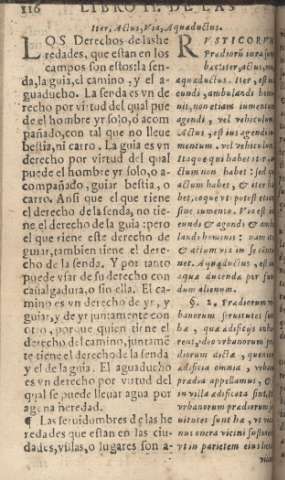 116 LIBRO II. DE LAS
Iter, Actus, Via, Aquaductus.
LOS Derechos de las he
redades, que estan en los
campos son estos: la sen-
da, la guia, el camino, y el a-
guaducho. La senda es vn de
recho por virtud del qual pue
de el hombre yr solo, ò acom
pañado, con tal que no lleue
bestia, ni carro. La guia es vn
derecho por virtud del qual
puede el hombre yr solo, o a-
compañado, guiar bestia, o
carro. Ansi que el que tiene
el derecho de la senda, no tie-
ne el derecho de la guia: pero
el que tiene este derecho de
guiar, tambien tiene el dere-
cho de la senda. Y por tanto
puede vsar de su derecho con
caualgadura, o sin ella. El ca-
mino es vn derecho de yr, y
guiar, y de yr juntamente con
otro, porque quien tiene el
derecho del camino, juntamẽ
te tiene el derecho de la senda
y el de la guia. El aguaducho
es vn derecho por virtud del
qual se puede lleuar agua por
agena heredad.
¶ Las seruidumbres de las he
redades que estan en las ciu-
dades, villas, o lugares son a-
RVSTICORVM
Prædiorũ iura sunt
hæc: iter, actus, via,
aquæductus. Iter, est ius
eundi, ambulandi homi-
nis, non etiam iumentum
agendi, vel vehiculum.
Actus, est ius agendi iu-
mentum, vel vehiculum.
Itaque qui habet iter, a-
ctum non habet: sed qui
actum habet, & iter ha-
bet, eoque vti potest etiam
sine iumento. Via est ius
eundi & agendi & am-
bulandi hominis: nam &
iter & actum via in se conti-
net. Aquæductus, est ius
aquæ ducendæ per fun-
dum alienum.
§. 2. Prædiorum vr
banorum seruitutes sunt
hæ, quæ ædificijs inhæ-
rent, ideo vrbanorum præ
diorum dictæ, quoniam
ædificia omnia, vrbana
prædia appellamus, &
in villa ædificata sint. Item
vrbanorum prædiorum ser
uitutes sunt hæ, vt vici-
nus onera vicini sustineat,
vt in parietem eius liceat